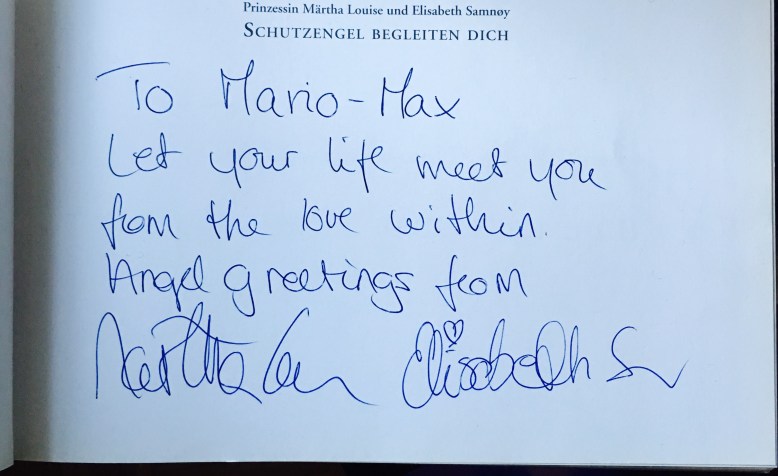 Prinzessin Märtha Louise und Elisabeth Samnøy
SCHUTZENGEL BEGLEITEN DICH
To Mario-Max
Let your life meet you
from the love within.
Angel greetings from
Märtha Lou Elisabeth S